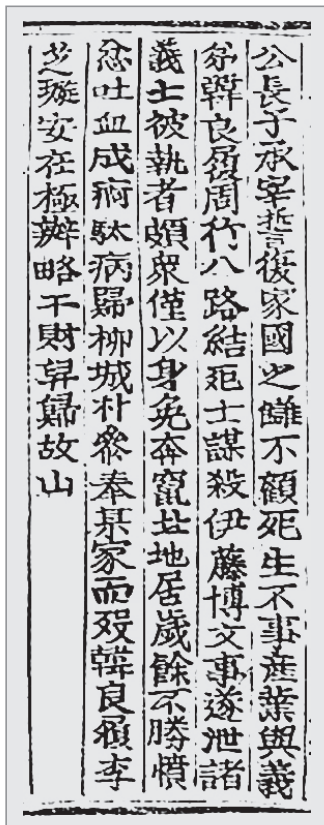 公長子承宰誓復家國之讎不顧死生不事産業與義
弟韓良履周行八路結死士謀殺伊藤博文事遂泄諸
義士被執者頗衆僅以身免奔竄北地居歲餘不勝憤
忿吐血成痾馱病歸柳城朴參奉某家而歿韓良履李
芝璇安在極辦略干財舁歸故山